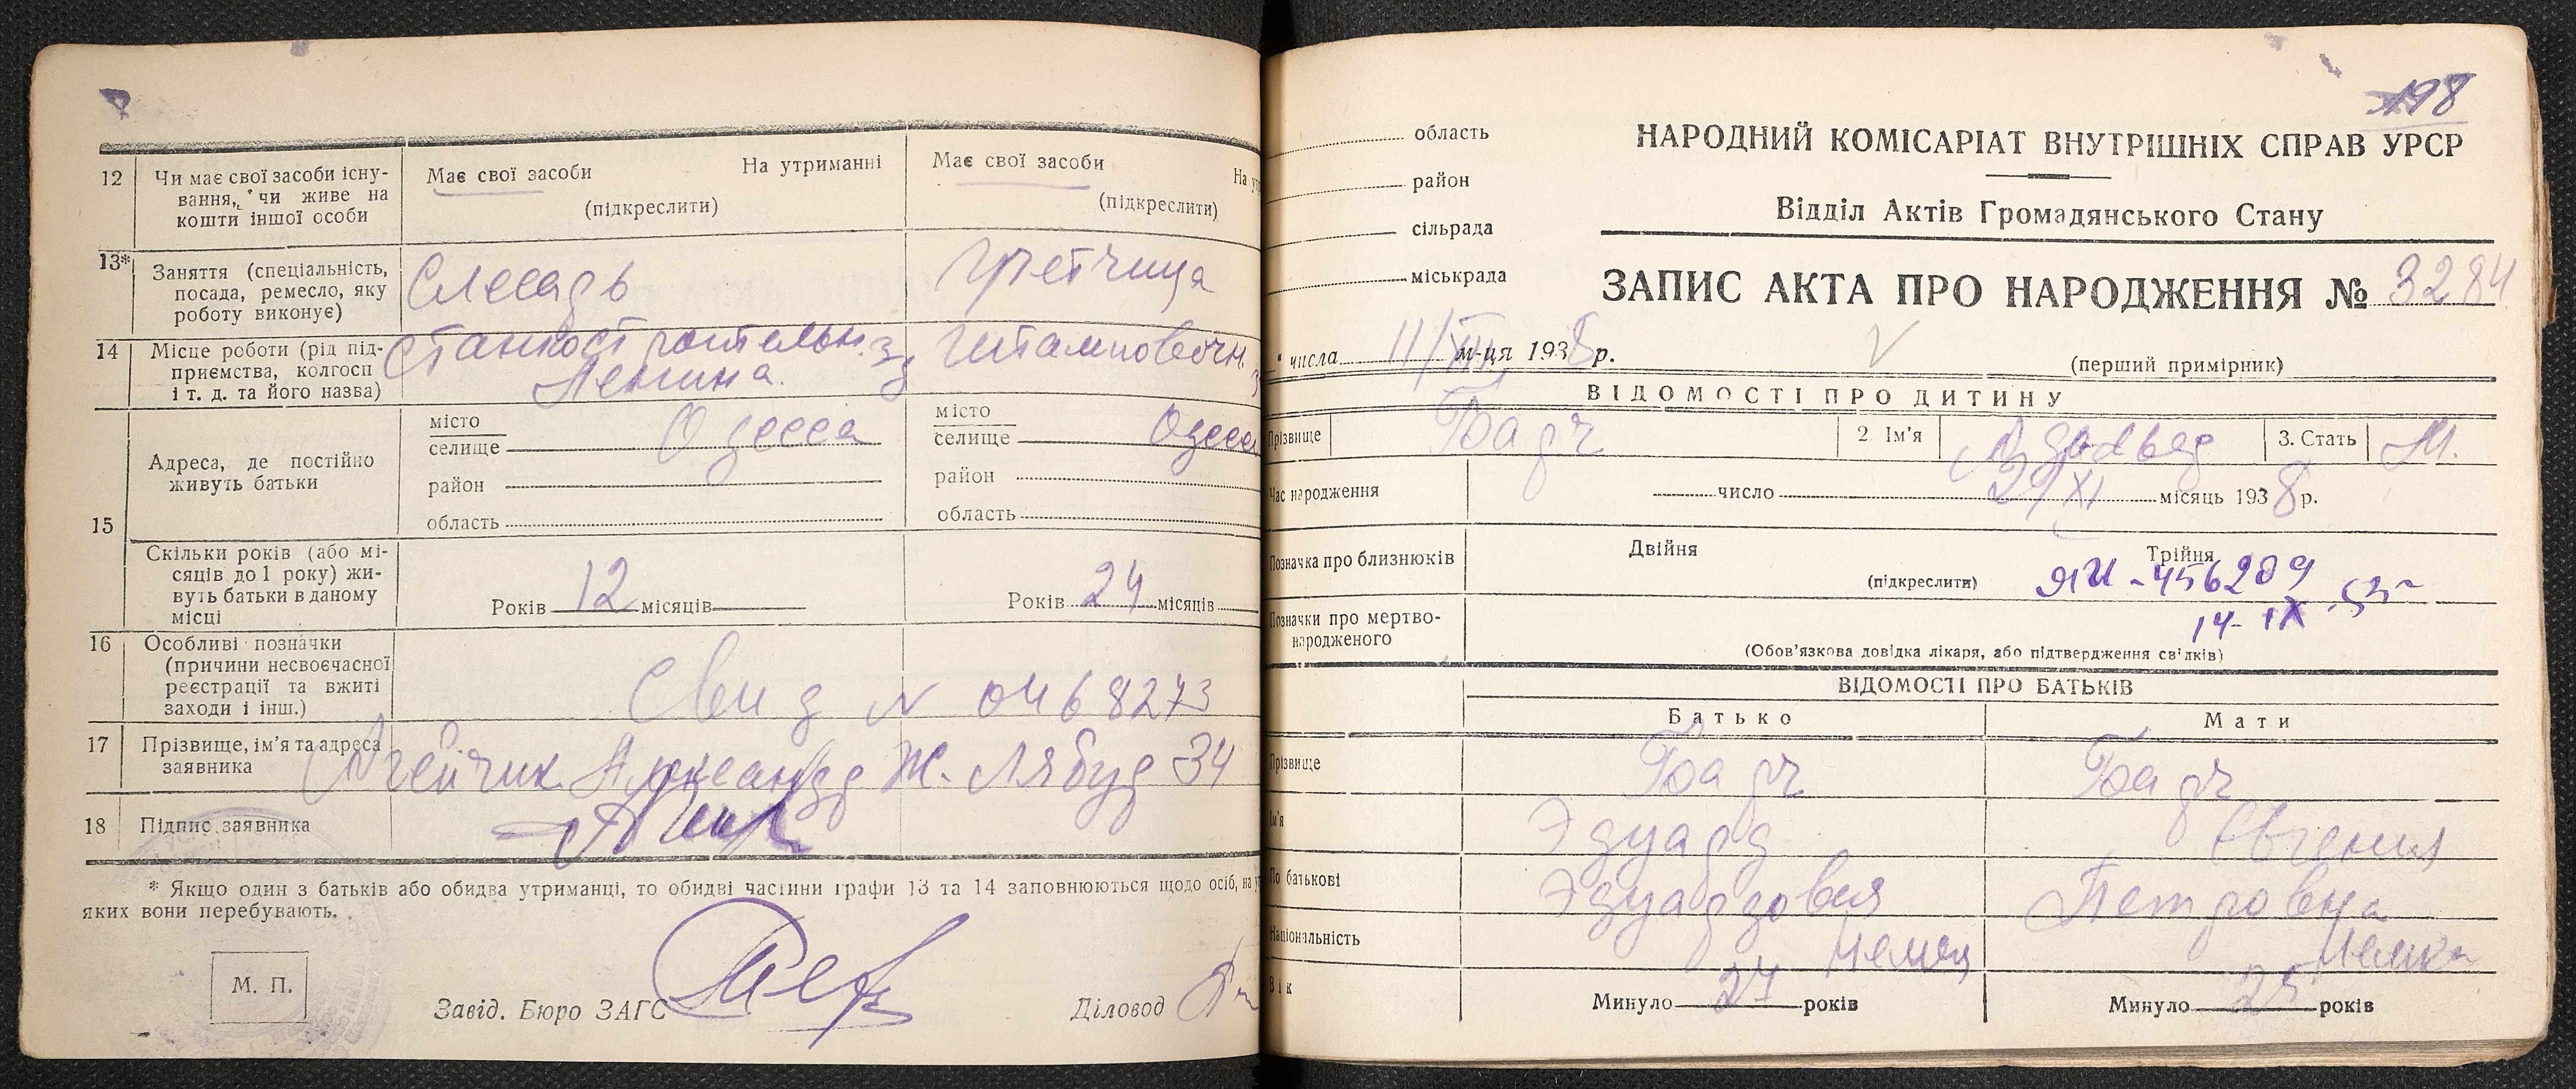 12 Чи має свої засоби існу-
вання, чи живе на
кошти іншої особи
Має свої засоби На утриманні
(підкреслити)
Має свої засоби На
(підкреслити)
13* Заняття (спеціальність,
посада, ремесло, яку
роботу виконує)
Слесарь
14 Місце роботи (рід під-
приємства, колгосп
і т. д. та його назва)
Ленина
15 Адреса, де постійно
живуть батьки
місто
селище Одесса
район
область
місто
селище Одесса
район
область
Скільки років (або мі-
сяців до 1 року) жи-
вуть батьки в даному
місці
Років 12 місяців
Років 24 місяців
16 Особливі позначки
(причини несвоєчасної
реєстрації та вжиті
заходи і інш.)
Свид N 0468273
17 Прізвище, ім'я та адреса
заявника
Александр 34
18 Підпис заявника
* Якщо один з батьків або обидва утриманці, то обидві частини графи 13 та 14 заповнюються щодо осіб, на
яких вони перебувають.
М. П.
Завід. Бюро ЗАГС
Діловод
198
область
район
сільрада
міськрада
НАРОДНИЙ КОМІСАРІАТ ВНУТРІШНІХ СПРАВ УРСР
Відділ Актів Громадянського Стану
ЗАПИС АКТА ПРО НАРОДЖЕННЯ № 3284
" числа 11/XII м-ця 1938 р.
(перший примірник)
ВІДОМОСТІ ПРО ДИТИНУ
Прізвище Бадг 2. Ім'я 3. Стать М.
Час народження число 29/XI місяць 1938 р.
Позначка про близнюків Двійня Трійня
(підкреслити)
14-IX
Позначки про мертво-
народженого
(Обов'язкова довідка лікаря, або підтвердження свідків)
ВІДОМОСТІ ПРО БАТЬКІВ
Батько Мати
Прізвище
Ім'я Эдуард Евгения
По батькові Эдуардович Петровна
Національність Немец Немка
Вік Минуло 27 років Минуло 25 років